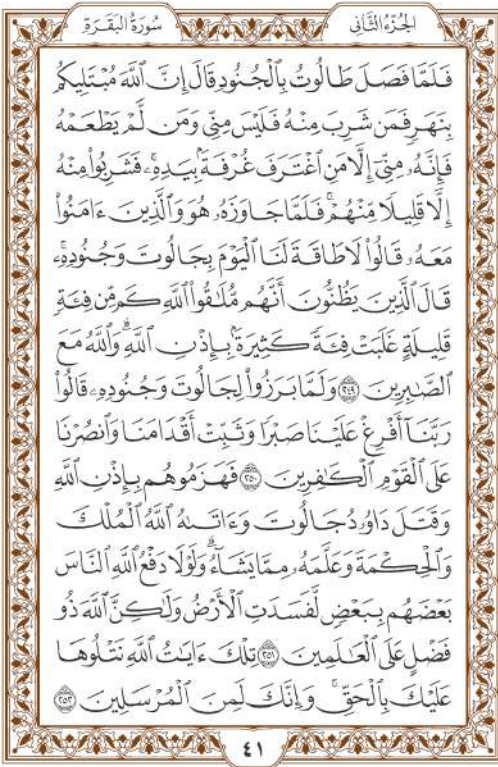 الجُزْءُ الثَّانِي سُورَةُ البَقَرَةِ
فَلَمَّا فَصَلَ طَالُوتُ بِٱلْجُنُودِ قَالَ إِنَّ ٱللَّهَ مُبْتَلِيكُم
بِنَهَرٍ فَمَن شَرِبَ مِنْهُ فَلَيْسَ مِنِّي وَمَن لَّمْ يَطْعَمْهُ
فَإِنَّهُۥ مِنِّيٓ إِلَّا مَنِ ٱغْتَرَفَ غُرْفَةَۢ بِيَدِهِۦۚ فَشَرِبُوا۟ مِنْهُ
إِلَّا قَلِيلًا مِّنْهُمْۚ فَلَمَّا جَاوَزَهُۥ هُوَ وَٱلَّذِينَ ءَامَنُوا۟
مَعَهُۥ قَالُوا۟ لَا طَاقَةَ لَنَا ٱلْيَوْمَ بِجَالُوتَ وَجُنُودِهِۦۚ
قَالَ ٱلَّذِينَ يَظُنُّونَ أَنَّهُم مُّلَٰقُوا۟ ٱللَّهِ كَم مِّن فِئَةٍ
قَلِيلَةٍ غَلَبَتْ فِئَةً كَثِيرَةَۢ بِإِذْنِ ٱللَّهِۗ وَٱللَّهُ مَعَ
ٱلصَّٰبِرِينَ ﴿٢٤٩﴾ وَلَمَّا بَرَزُوا۟ لِجَالُوتَ وَجُنُودِهِۦ قَالُوا۟
رَبَّنَآ أَفْرِغْ عَلَيْنَا صَبْرًا وَثَبِّتْ أَقْدَامَنَا وَٱنصُرْنَا
عَلَى ٱلْقَوْمِ ٱلْكَٰفِرِينَ ﴿٢٥٠﴾ فَهَزَمُوهُم بِإِذْنِ ٱللَّهِ
وَقَتَلَ دَاوُۥدُ جَالُوتَ وَءَاتَىٰهُ ٱللَّهُ ٱلْمُلْكَ
وَٱلْحِكْمَةَ وَعَلَّمَهُۥ مِمَّا يَشَآءُۗ وَلَوْلَا دَفْعُ ٱللَّهِ ٱلنَّاسَ
بَعْضَهُم بِبَعْضٍ لَّفَسَدَتِ ٱلْأَرْضُ وَلَٰكِنَّ ٱللَّهَ ذُو
فَضْلٍ عَلَى ٱلْعَٰلَمِينَ ﴿٢٥١﴾ تِلْكَ ءَايَٰتُ ٱللَّهِ نَتْلُوهَا
عَلَيْكَ بِٱلْحَقِّۚ وَإِنَّكَ لَمِنَ ٱلْمُرْسَلِينَ ﴿٢٥٢﴾
٤١